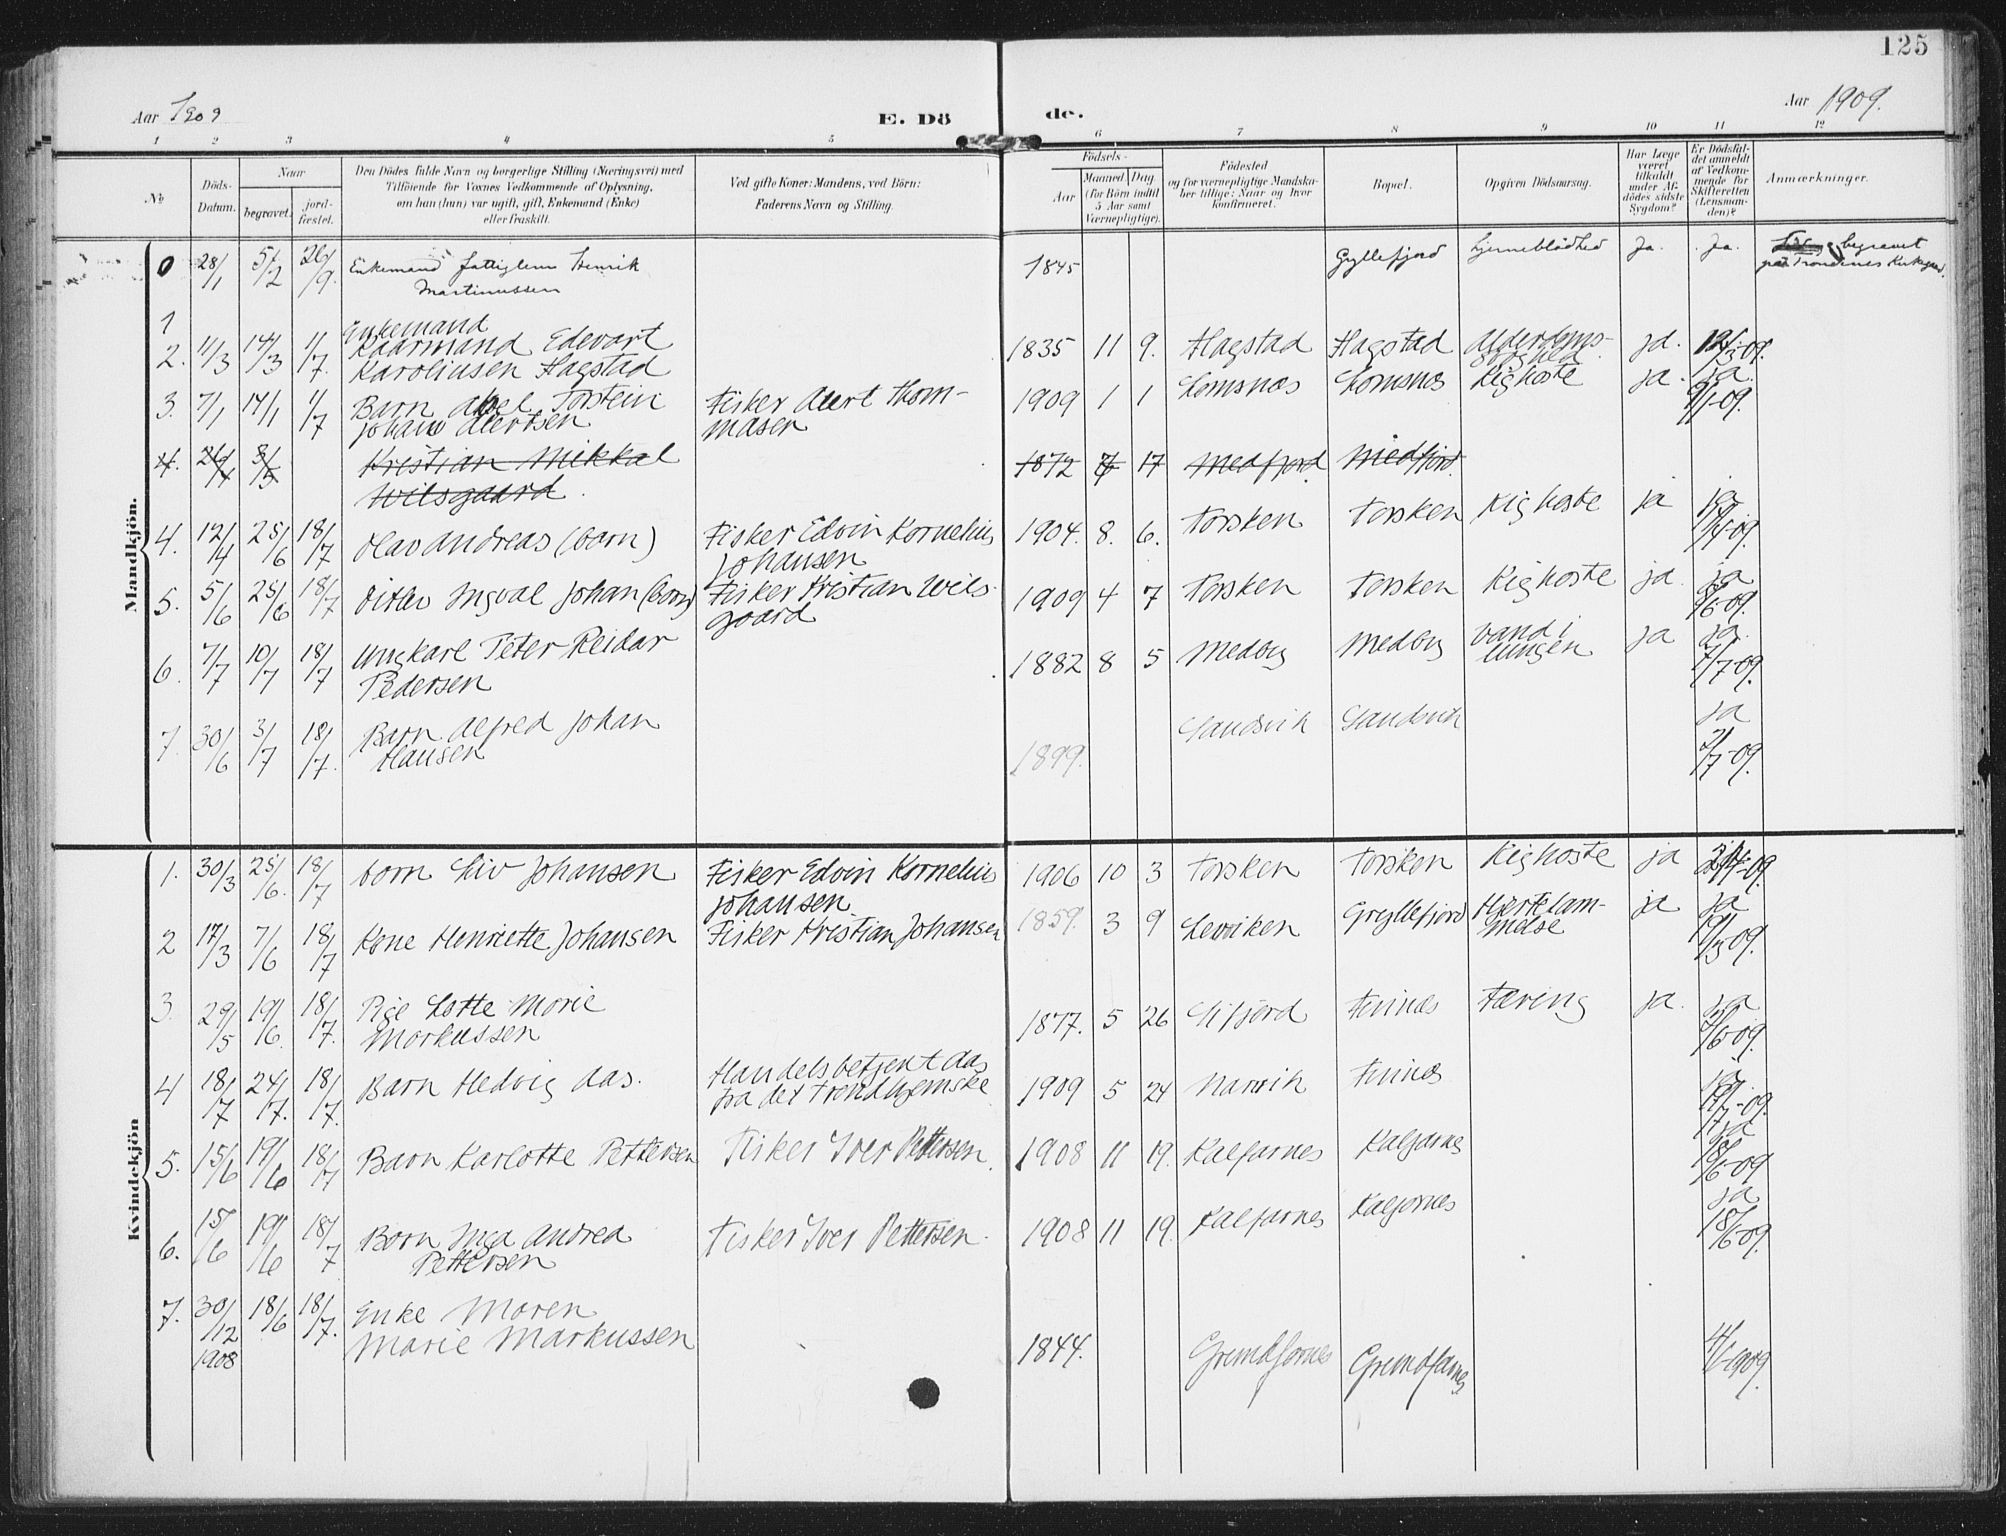 125
Aar 1909
E. Dö
de.
Aar 1909.
1 2 3 4 5 6 7 8 9 10 11 12
No
Döds-
Datum.
Naar
begravet.
jord-
fæstet.
Den Dödes fulde Navn og borgerlige Stilling (Næringsvei) med
Tilföiende for Voxnes Vedkommende af Oplysning,
om han (hun) var ugift, gift, Enkemand (Enke)
eller fraskilt.
Ved gifte Koner: Mandens, ved Börn:
Faderens Navn og Stilling.
Födsels-
Aar
Maaned Dag
(for Börn indtil
5 Aar samt
Værnepligtige).
Födested
og for værnepligtige Mandska-
ber tillige: Naar og hvor
konfirmeret.
Bopæl.
Opgiven Dödsaarsag.
Har Læge
været
tilkaldt
under Af-
dödes sidste
Sygdom?
Er Dödsfal-
det anmeldt
af Vedkom-
mende for
Skifteretten
(Lensman-
den)?
Anmærkninger.
Mandkjön.
0 28/1 5/2 26/9 Enkemand fattiglem Henrik
Martinussen
1845 Gryllefjord Hjerneblødhed Ja. Ja. begravet
på Trondenes Kirkegaard.
1
Enkemand
2. 11/3 14/3 11/7. Kaarmand Edevart
Karoliusen Hagstad
1835 11 9. Hagstad Hagstad Alderdoms-
svaghed ja. 12/3-09.
3. 7/1 14/1 11/7 Barn Aksel Torstein
Johan Alertsen
Fisker Alert Thom-
masen
1909 1 1 Lomsnæs Lomsnæs Kighoste ja. ja
9/1-09.
4. 26/4 3/5 Kristian Mikkal
Wilsgaard
1872 7 17 Medfjord Medfjord
4. 12/4 25/6 18/7 Olav Andreas (barn)
Fisker Edvin Kornelius
Johansen
1904. 8. 6. Torsken Torsken Kighoste ja 19/4-09.
5. 5/6 25/6 18/7 Ditlev Ingval Johan (barn)
Fisker Kristian Wils-
gaard
1909 4 7 Torsken Torsken Kighoste ja. ja
8/6-09.
6. 7/7 10/7 18/7 Ungkarl Peter Reidar
Pedersen
1882 8 5 Medby Medby Vand i
lungen ja ja
7/7-09.
7. 30/6 3/7 18/7. Barn Alfred Johan
Hansen
1899. Sandvik Sandvik ja
2/7-09.
Kvindekjön
1. 30/3 25/6. 18/7 barn Liv Johansen
Fisker Edvin Kornelius
Johansen
1906 10 3 Torsken Torsken Kighoste ja 21/4-09.
2 17/3 7/6 18/7 Kone Henriette Johansen
Fisker Kristian Johansen
1859. 3 9 Levviken Gryllefjord Hjertelam-
melse ja ja
19/3-09.
3. 29/5 19/6. 18/7. Pige Lotte Marie
Markussen
1877. 5 26 Sifjord Finnæs Tæring ja. ja
7/6-09.
4 18/7 24/7. 18/7. Barn Hedvig Aas.
Handelsbetjent Aas
fra det Trondhjemske
1909 5 24 Narvik Finnæs ja
19/7-09.
5. 15/6 19/6 18/7 Barn Karlotte Pettersen
Fisker Iver Pettersen.
1908 11 19. Kalfarnes Kalfarnes ja
18/6-09
6. 15/6 19/6 18/7 Barn Inga Andrea
Pettersen
Fisker Iver Pettersen.
1908 11 19. Kalfarnes Kalfarnes ja
18/6-09.
7. 30/12 18/6 18/7. Enke Maren
1908 Marie Markussen
1844. Grundfarnes Grundfarnes 4/1-1909.